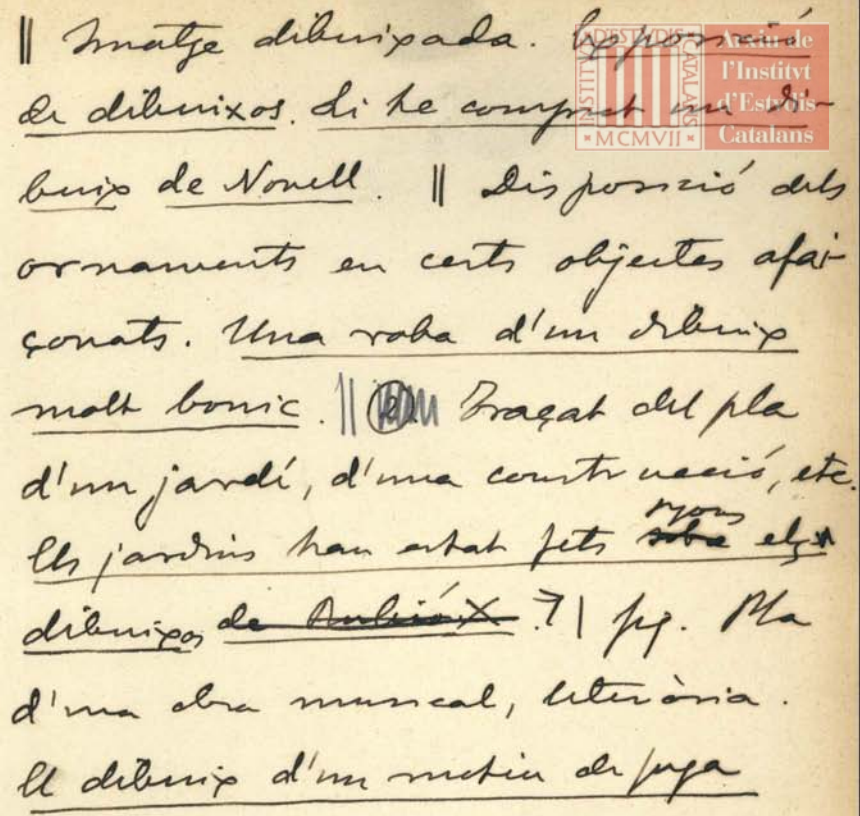 || Imatge dibuixada. Exposició
de dibuixos. Li he comprat un di-
buix de Nonell. || Disposició dels
ornaments en certs objectes afai-
çonats. Una roba d'un dibuix
molt bonic. || Traçat del pla
d'un jardí, d'una construcció, etc.
Els jardins han estat fets sobre segons els
dibuixos de Rubió X. | fig. Pla
d'una obra musical, literària.
El dibuix d'un motiu de fuga
INSTITUT D'ESTUDIS CATALANS
MCMVII
Arxiu de
l'Institvt
d'Estvdis
Catalans